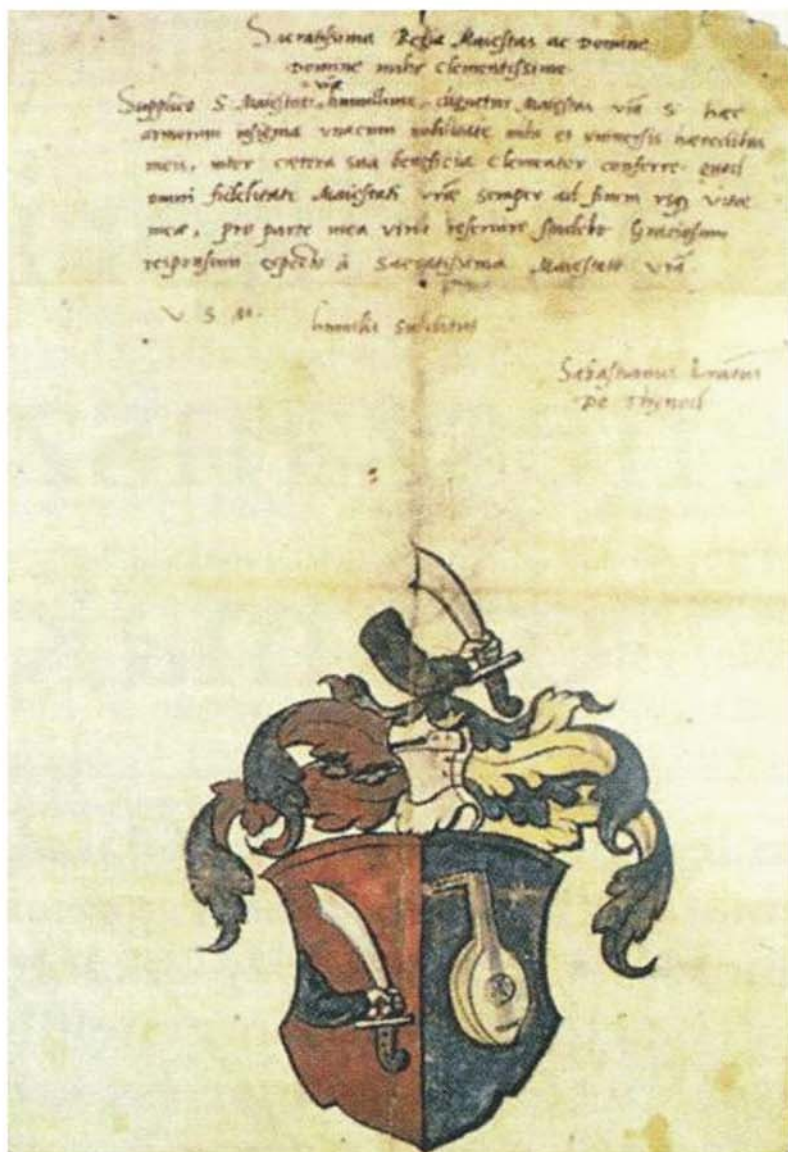 Sacratissima Regia Maiestas ac Domine
Domine mihi Clementissime
Supplico S Maiestati vrae humillime, dignetur Maiestas vra S haec
armorum insignia unacum nobilitate mihi et universis haeredibus
meis, inter caetera sua beneficia clementer conferre quod
omni fidelitate Maiestati vrae semper ad finem usq vitae
meae, pro parte mea reservire studebo Graciosum
responsum expecto à Sacratissima Maiestate vra
V S M.
humilis subditus
Sebastianus
De Thynod